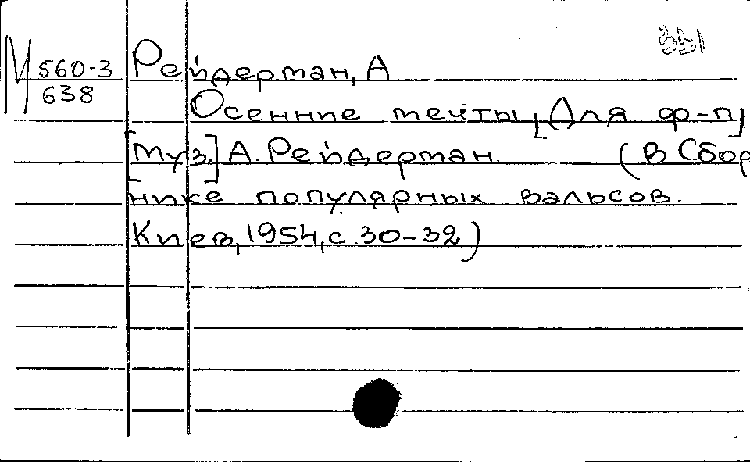 М 560-3
638
Рейдерман, А
Осенние мечты [Для ф-п]
[Муз.] А. Рейдерман (В Сбор
нике популярных вальсов.
Киев, 1954, с. 30-32)